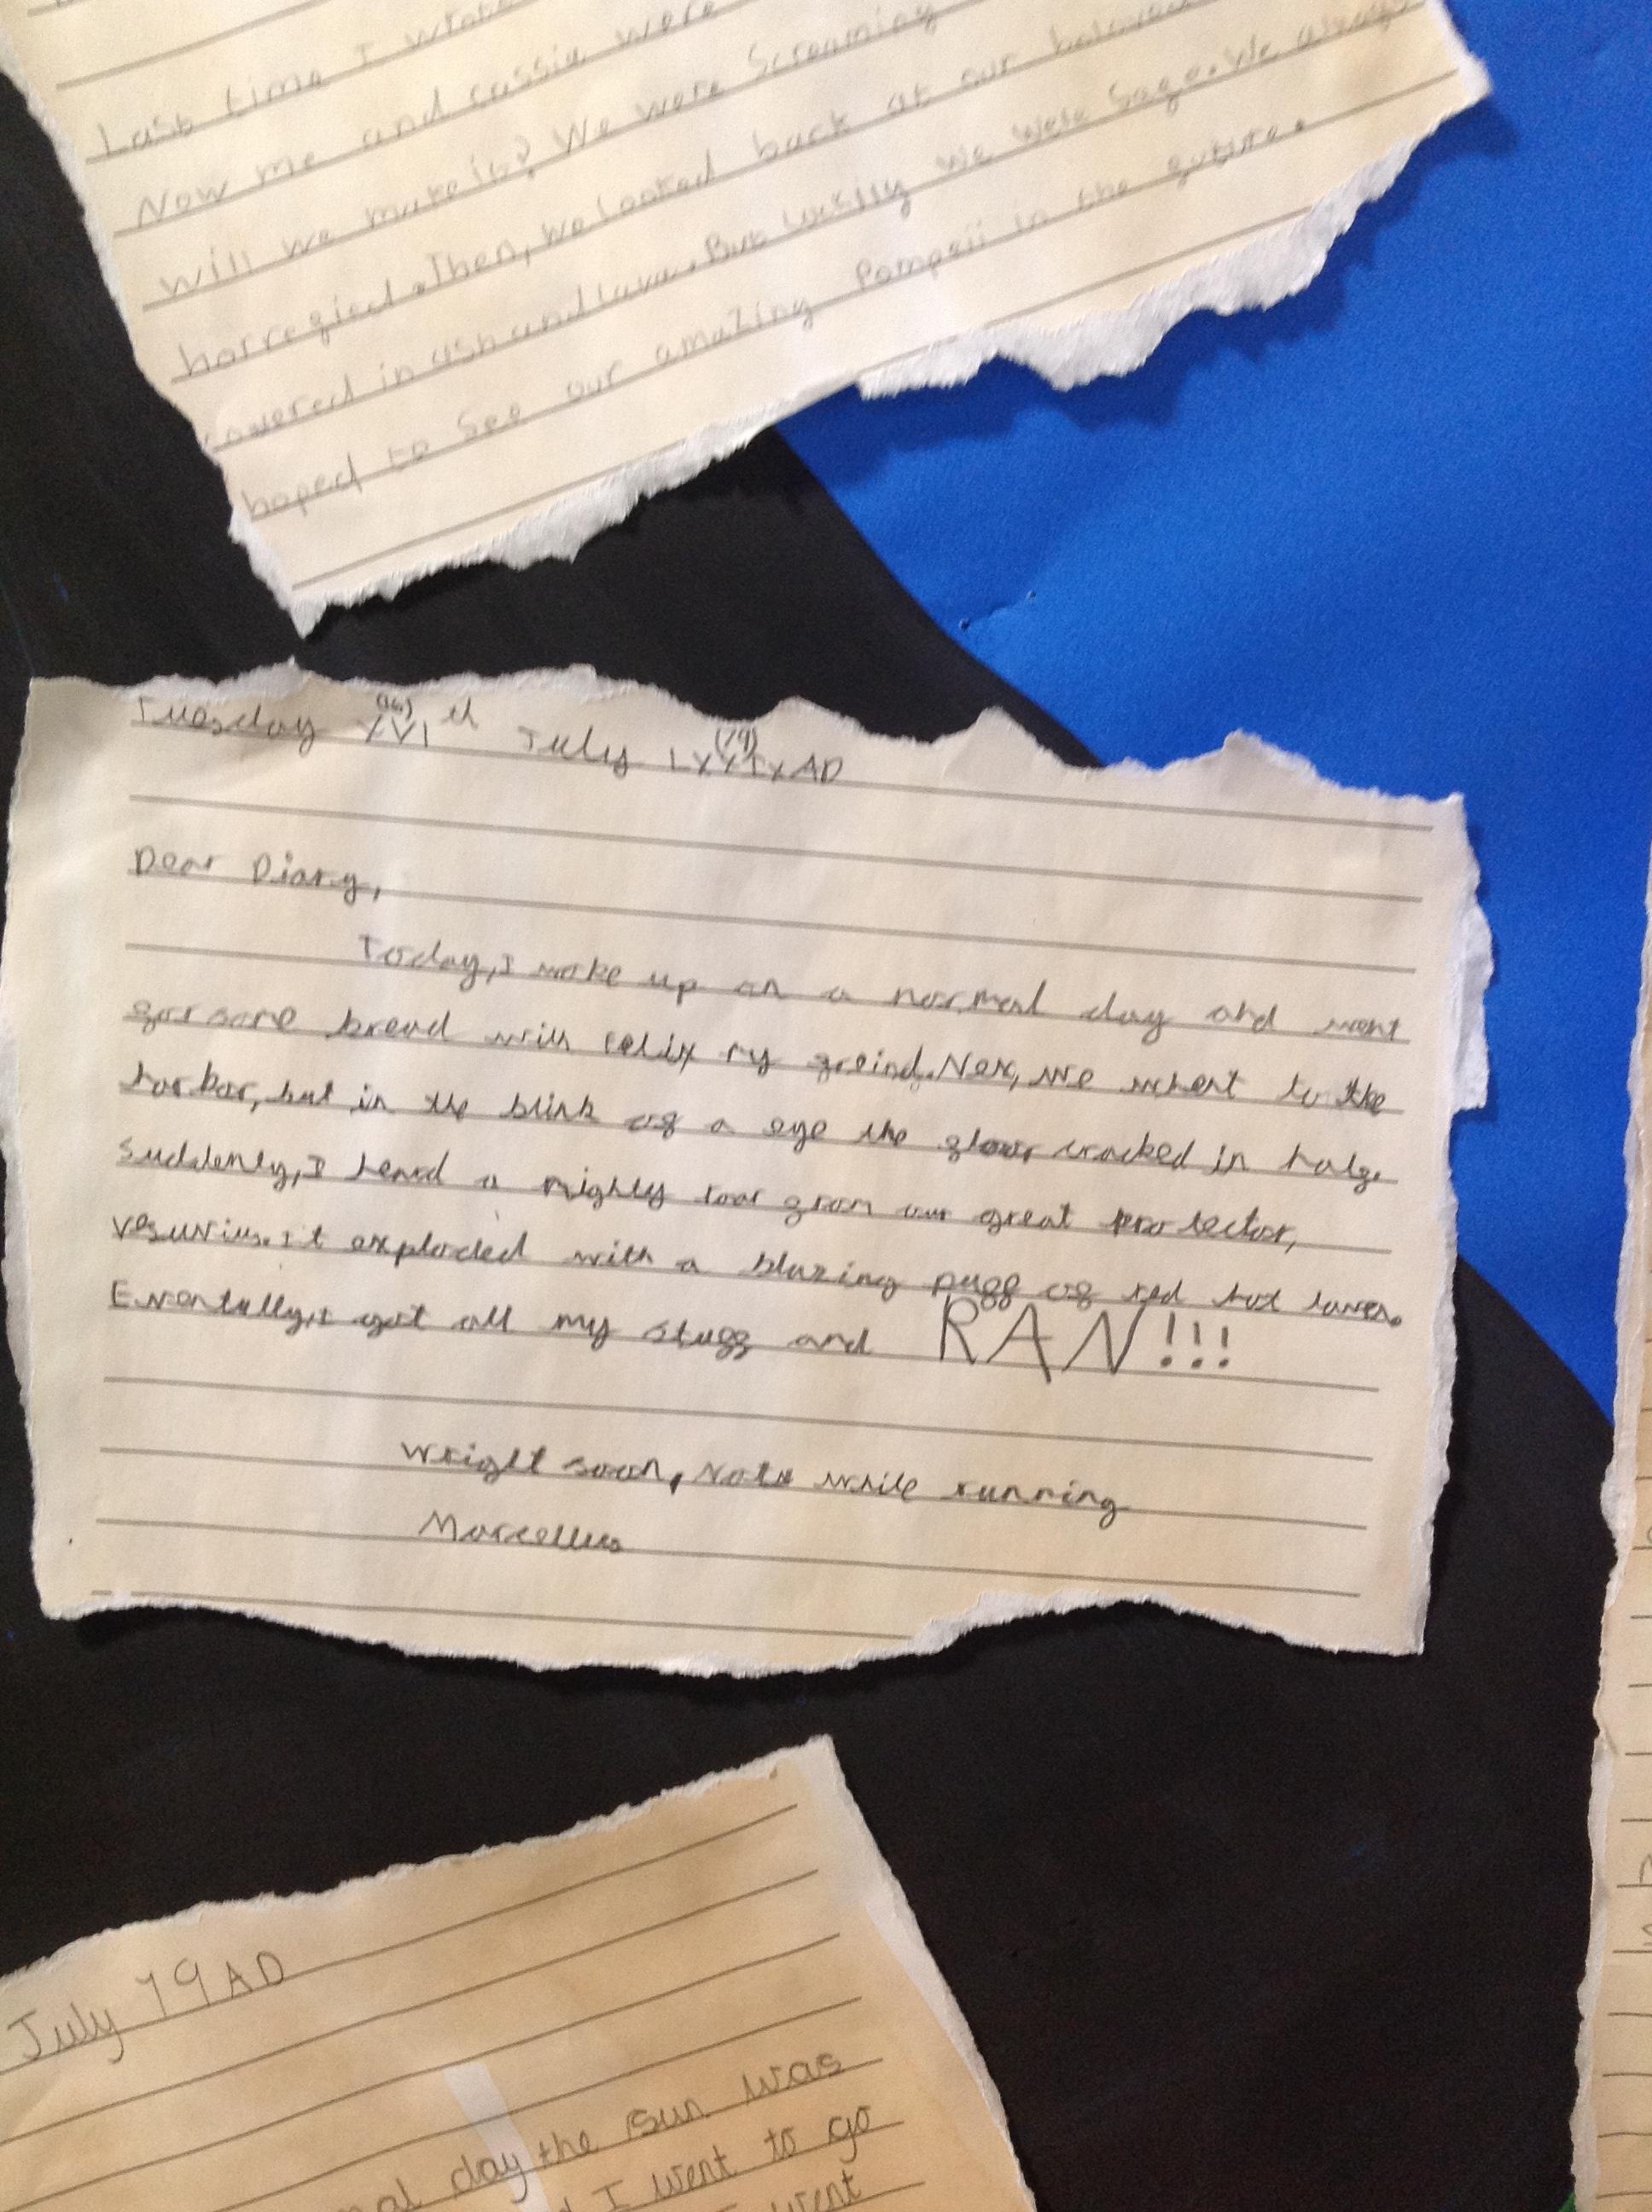 Last time I
Now me and cassia were
will we make it? We were Screaming
horregied. Then, we looked back at our
covered in ash and lava. But luckily we were Sage. We
hoped to See our amazing Pompeii in the guture.
Tuesday XVI (16) th July LXXIX (79) AD
Dear Diary,
Today, I woke up on a normal day and went
gor some bread with Felix my greind. Nex, we whent to the
harbor, but in the blink og a eye the gloor cracked in halg.
Suddenly, I heard a mighty roar grom our great protector,
Vesuvius. It exploded with a blazing pugg og red hot laver.
Eventully, I got all my stugg and RAN!!!
Wright soon, Note while running
Marcellus
July 79 AD
day the sun was
I went to go
went